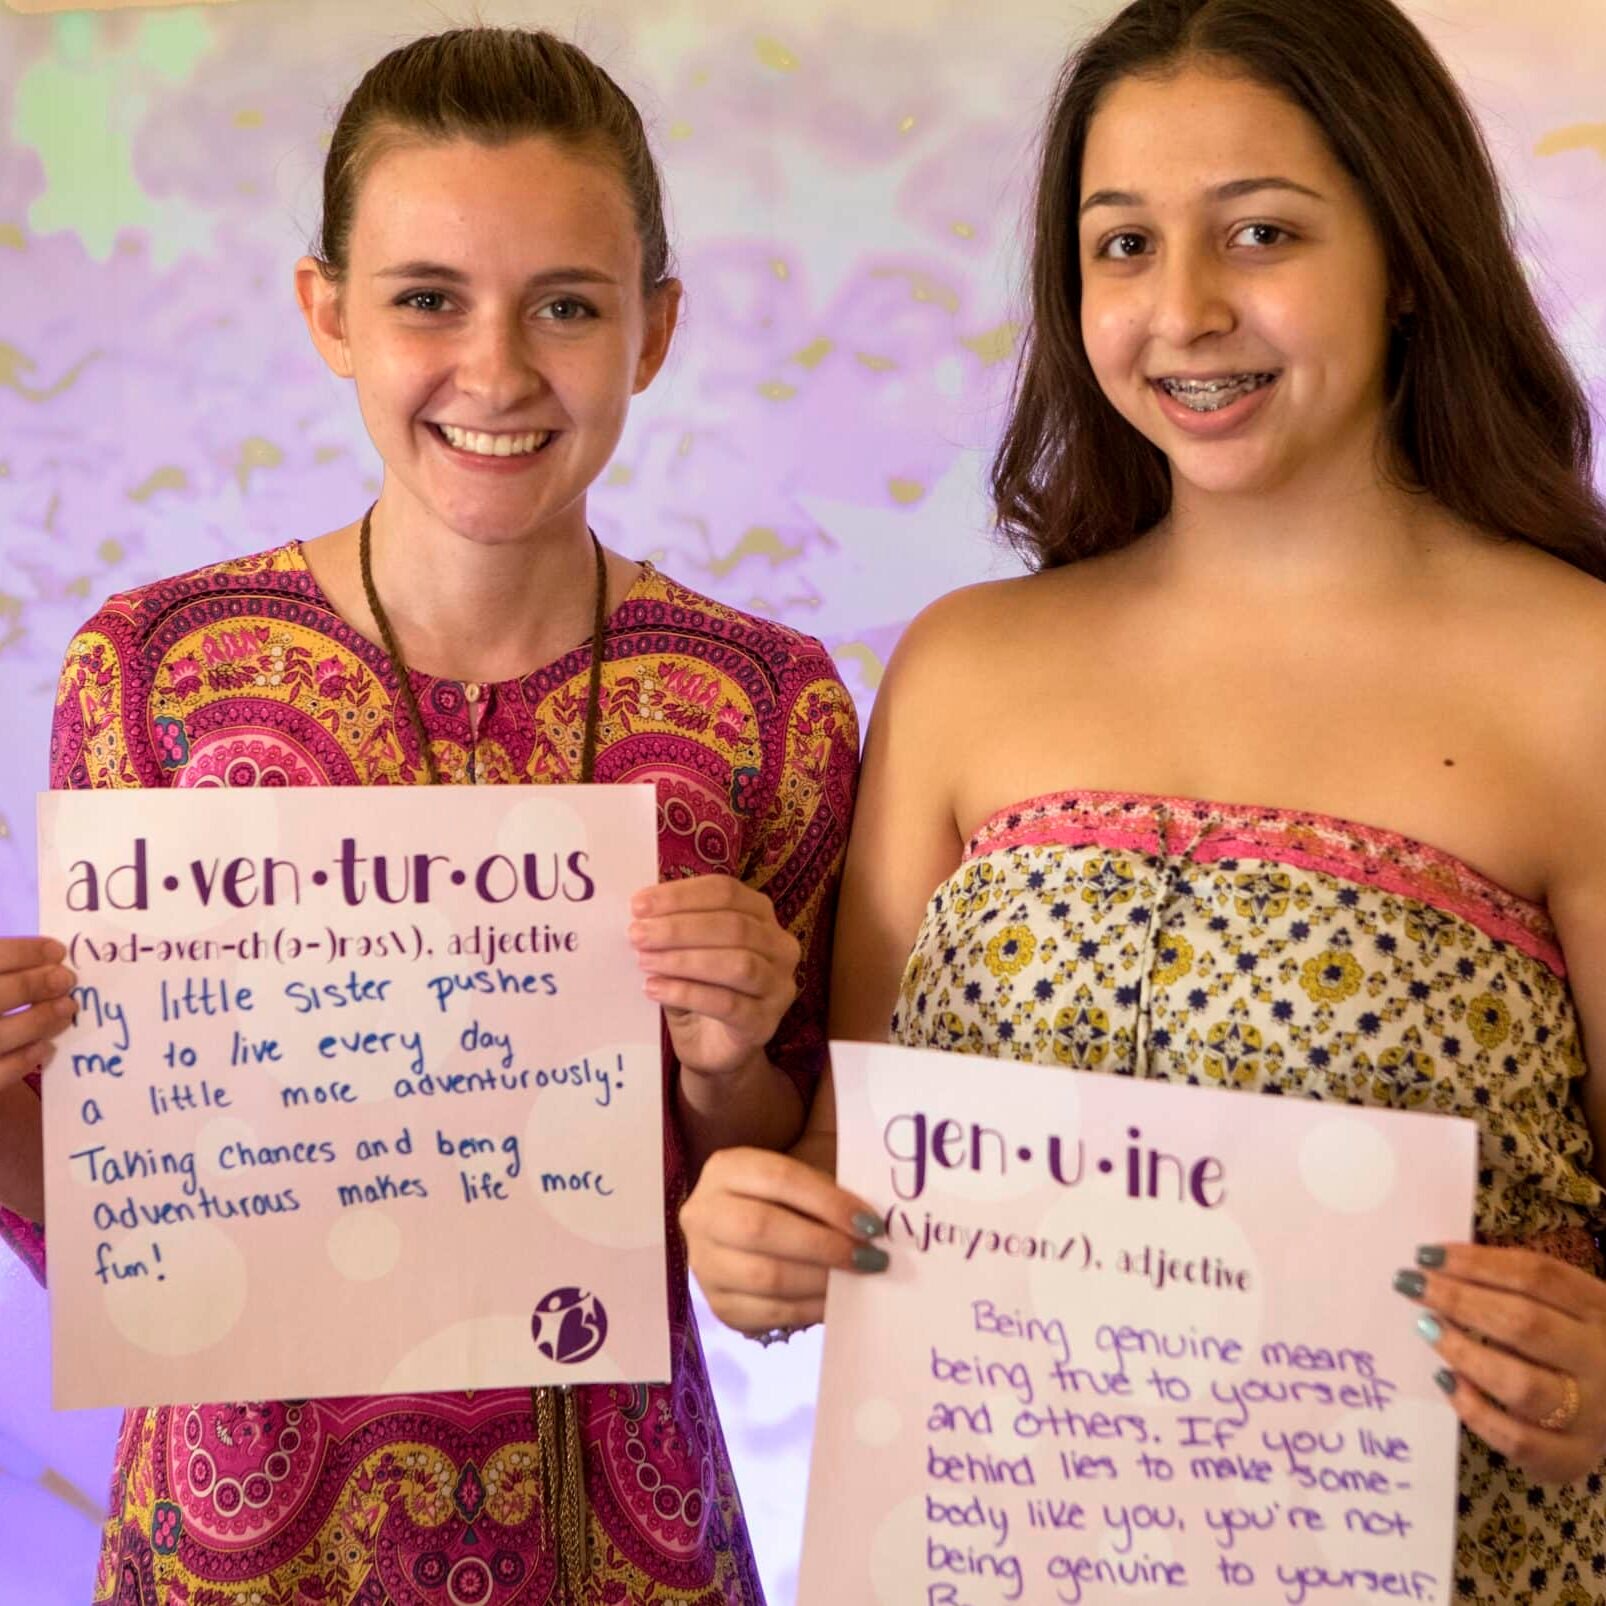 ad•ven•tur•ous
(\əd-əven-ch(ə-)rəs\), adjective
My little sister pushes
me to live every day
a little more adventurously!
Taking chances and being
adventurous makes life more
fun!
gen•u•ine
(\jenyəcən/), adjective
Being genuine means
being true to yourself
and others. If you live
behind lies to make some-
body like you, you're not
being genuine to yourself.